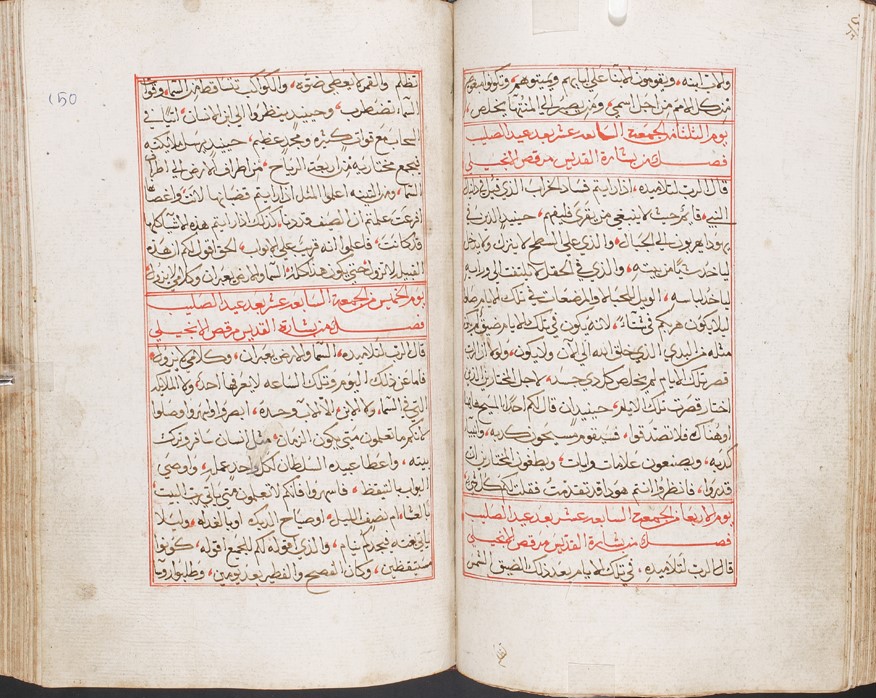 والاب ابنه، ويقومون الابنا على ابايهم ويميتوهم، وتكونوا مبغوضين
من كل الامم من اجل اسمي، ومن يصبر الى المنتها يخلص،
يوم الثلثا من الجمعه السابعه عشر بعد عيد الصليب
فصل من بشارة القديس مرقص الانجيلي
قال الرب لتلاميذه، اذا رايتم فساد الخراب الذي قيل في دانيال
النبي، قايم حيث لا ينبغي من يقرى فليفهم، حينيذ الذين في
يهودا يهربون الى الجبال، والذي على السطح لا ينزل ولا يدخل
لياخذ شيًا من بيته، والذي في الحقل لا يلتفت الى ورايه
لياخذ لباسه، الويل للحبالا والمرضعات في تلك الايام صلوا
ليلا يكون هربكم في شتاء، لانه يكون في تلك الايام ضيق لم يكن
مثله من البدي الذي خلق الله الى الان ولا يكون، ولولا ان الرب
قصر تلك الايام لم يخلص كل ذي جسد، لاجل المختارين الذي
اختار قصرت تلك الايام، حينيذ ان قال لكم احد المسيح هاهنا
او هناك فلا تصدقوا، فسيقوم مسيحون كذبه، وانبيا
كذبه، ويصنعون علامات وايات، ويطغون المختارين ان
قدروا، فانظروا انتم هوذا قد تقدمت فقلت لكم كل شي
يوم الاربعا من الجمعه السابعه عشر بعد عيد الصليب
فصل من بشارة القديس مرقص الانجيلي
قال الرب لتلاميذه، في تلك الايام بعد ذلك الضيق الشمس
150
تظلم والقمر لا يعطي ضوه، والكواكب تتساقط من السما، وقوات
السما تضطرب، وحينيذ ينظروا الى ابن الانسان، اتيًا في
السحاب مع قوات كثيره ومجد عظيم، حينيذ يرسل ملايكته
فيجمع مختاريه من اربعة الرياح، من اطراف الارض الى اطراف
السما، ومن التينه اعلموا المثل اذا رايتم قضبانها لانت واغصانها
افرعت علمتم ان الصيف قد دنا، كذلك اذا رايتم هذه الاشيا كلها
قد كانت، فاعلموا انه قريب على الابواب، الحق اقول لكم ان هذه
القبيله لا تزول، حتى يكون هذا كله، السما والارض يعبران وكلامي لا يزول
يوم الخميس من الجمعه السابعه عشر بعد عيد الصليب
فصل من بشارة القديس مرقص الانجيلي
قال الرب لتلاميذه، السما والارض يعبران، وكلامي لا يزول
فاما عن ذلك اليوم وتلك الساعه لا يعرفها احد، ولا الملايكه
التي في السما، ولا الابن الا الاب وحده، انظروا واسهروا وصلوا
لانكم ما تعلمون متى يكون الزمان، مثل انسان سافر وترك
بيته، واعطا عبيده السلطان لكل واحد عمله، واوصى
البواب ليتيقظ، فاسهروا فانكم لا تعلمون متى ياتي رب البيت
بالعشا ام نصف الليل، او صياح الديك او بالغداه، وليلا
ياتي بغته فيجدكم نيام، والذي اقوله لكم للجميع اقوله، كونوا
مستيقظين، وكان الفصح والفطير بعد يومين، وطلبوا روسا